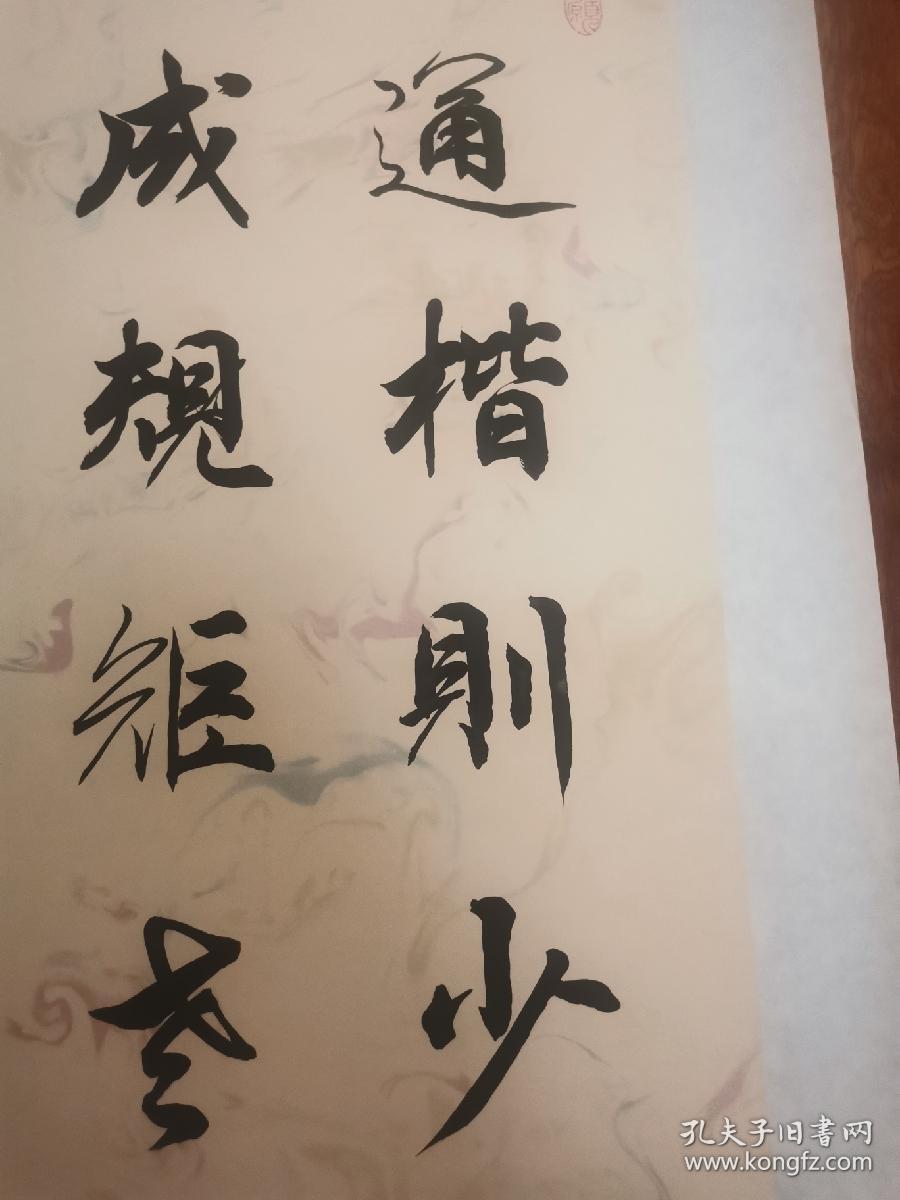 通楷則少
成規矩老
孔夫子旧書网
www.kongfz.com